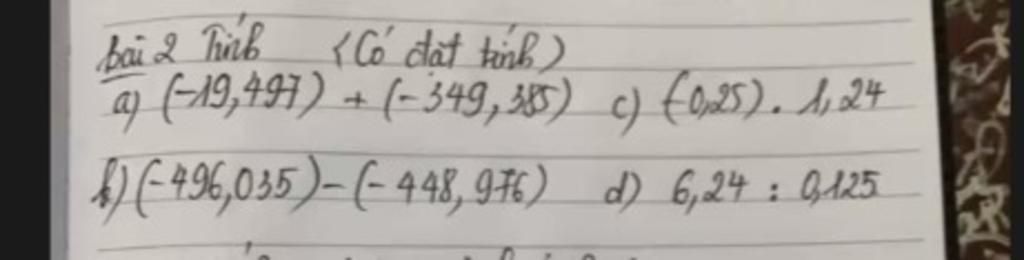 bài 2 Tính (Có đặt tính)
a) (-19,497) + (-349,385) c) (-0,25) . 1,24
b) (-496,035) - (-448,976) d) 6,24 : 0,125